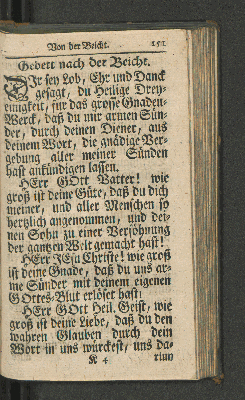 Von der Beicht. 151
Gebett nach der Beicht.
Dir sey Lob, Ehr und Danck
gesagt, du Heilige Drey-
einigkeit, für das grosse Gnaden-
Werck, daß du mir armen Sün-
der, durch deinen Diener, aus
deinem Wort, die gnädige Ver-
gebung aller meiner Sünden
hast ankündigen lassen.
HErr GOtt Vatter! wie
groß ist deine Güte, daß du dich
meiner, und aller Menschen so
hertzlich angenommen, und dei-
nen Sohn zu einer Versöhnung
der gantzen Welt gemacht hast!
HErr JEsu Christe! wie groß
ist deine Gnade, daß du uns ar-
me Sünder mit deinem eigenen
GOttes-Blut erlöset hast!
HErr GOtt Heil. Geist, wie
groß ist deine Liebe, daß du den
wahren Glauben durch dein
Wort in uns würckest, uns da-
K 4 rinn